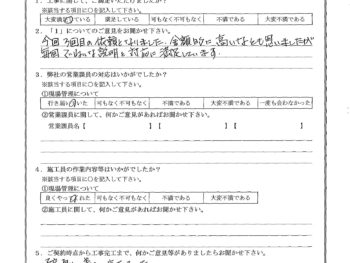 ※該当する項目に○を記入して下さい。
大変満足している 満足している 可も無く不可も無く 不満である 大変不満である
2．「1」についてのご意見をお聞かせ下さい。
今回3回目の依頼となりました。金額的に高いなとも思いましたが
毎回ていねいな説明と対応に満足しています。
3．弊社の営業課員の対応はいかがでしたか？
※該当する項目に○を記入して下さい。
①現場管理について
行き届いた 可もなく不可もなく 不満である 大変不満である 一度も会わなかった
②営業課員に関して、何かご意見があればお聞かせ下さい。
営業課員名【 】【 】【 】
4．施工員の作業内容等はいかがでしたか？
※該当する項目に○を記入して下さい。
①現場管理について
良くやってくれた 可もなく不可もなく 不満である 大変不満である
②施工員に関して、何かご意見があればお聞かせ下さい。
5．ご契約時点から工事完工まで、何かご意見等がありましたらお聞かせ下さい。